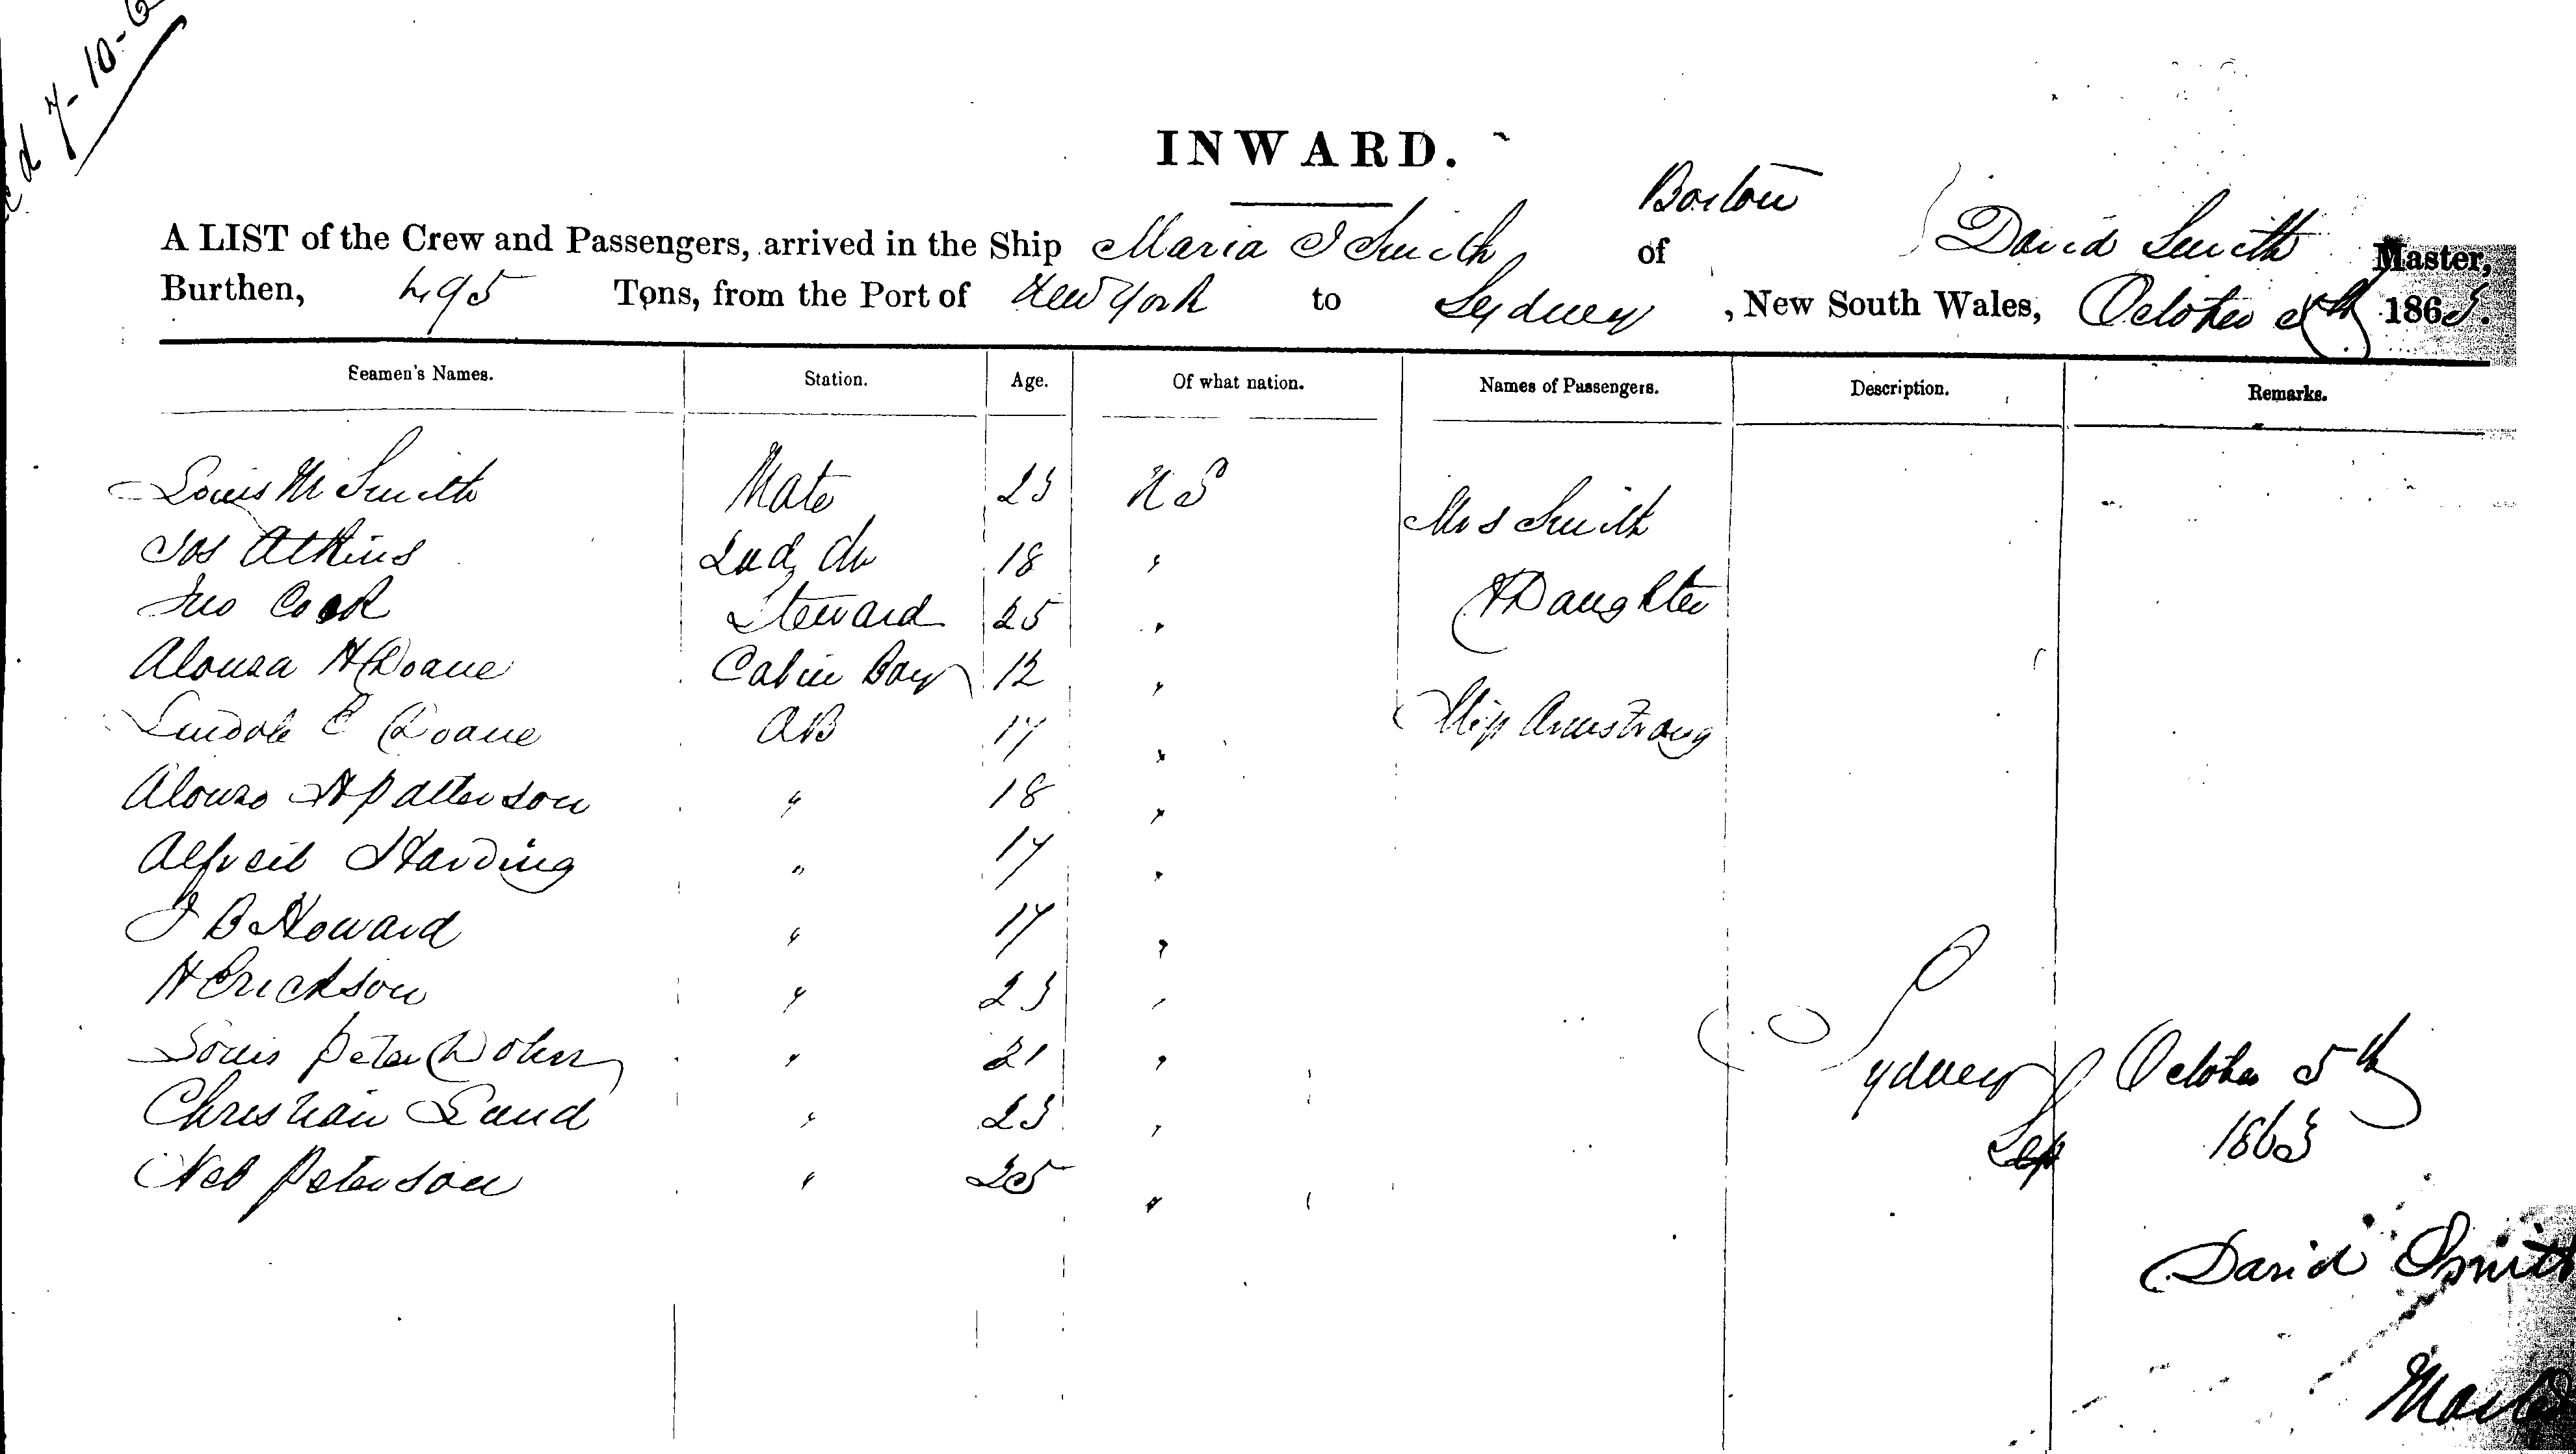 7-10-6
INWARD.
Boston
A LIST of the Crew and Passengers, arrived in the Ship Maria J Smith of David Smith Master,
Burthen, 495 Tons, from the Port of New York to Sydney, New South Wales, October 5th 1863.
Seamen's Names. Station. Age. Of what nation. Names of Passengers. Description. Remarks.
Louis M Smith Mate 23 U S Mrs Smith
Jos Atkins 2nd do 18 " & Daughter
Jno Cook Steward 25 "
Alonza H Doane Cabin Boy 12 "
E Doane AB 17 " Miss Armstrong
Alonzo H Patterson " 18 "
Alfred Harding " 17 "
J B Howard " 17 "
H Erickson " 23 "
Louis Peter " 21 "
Christian Lund " 23 "
Peterson " 25 "
Sydney October 5th
1863
David Smith
Master